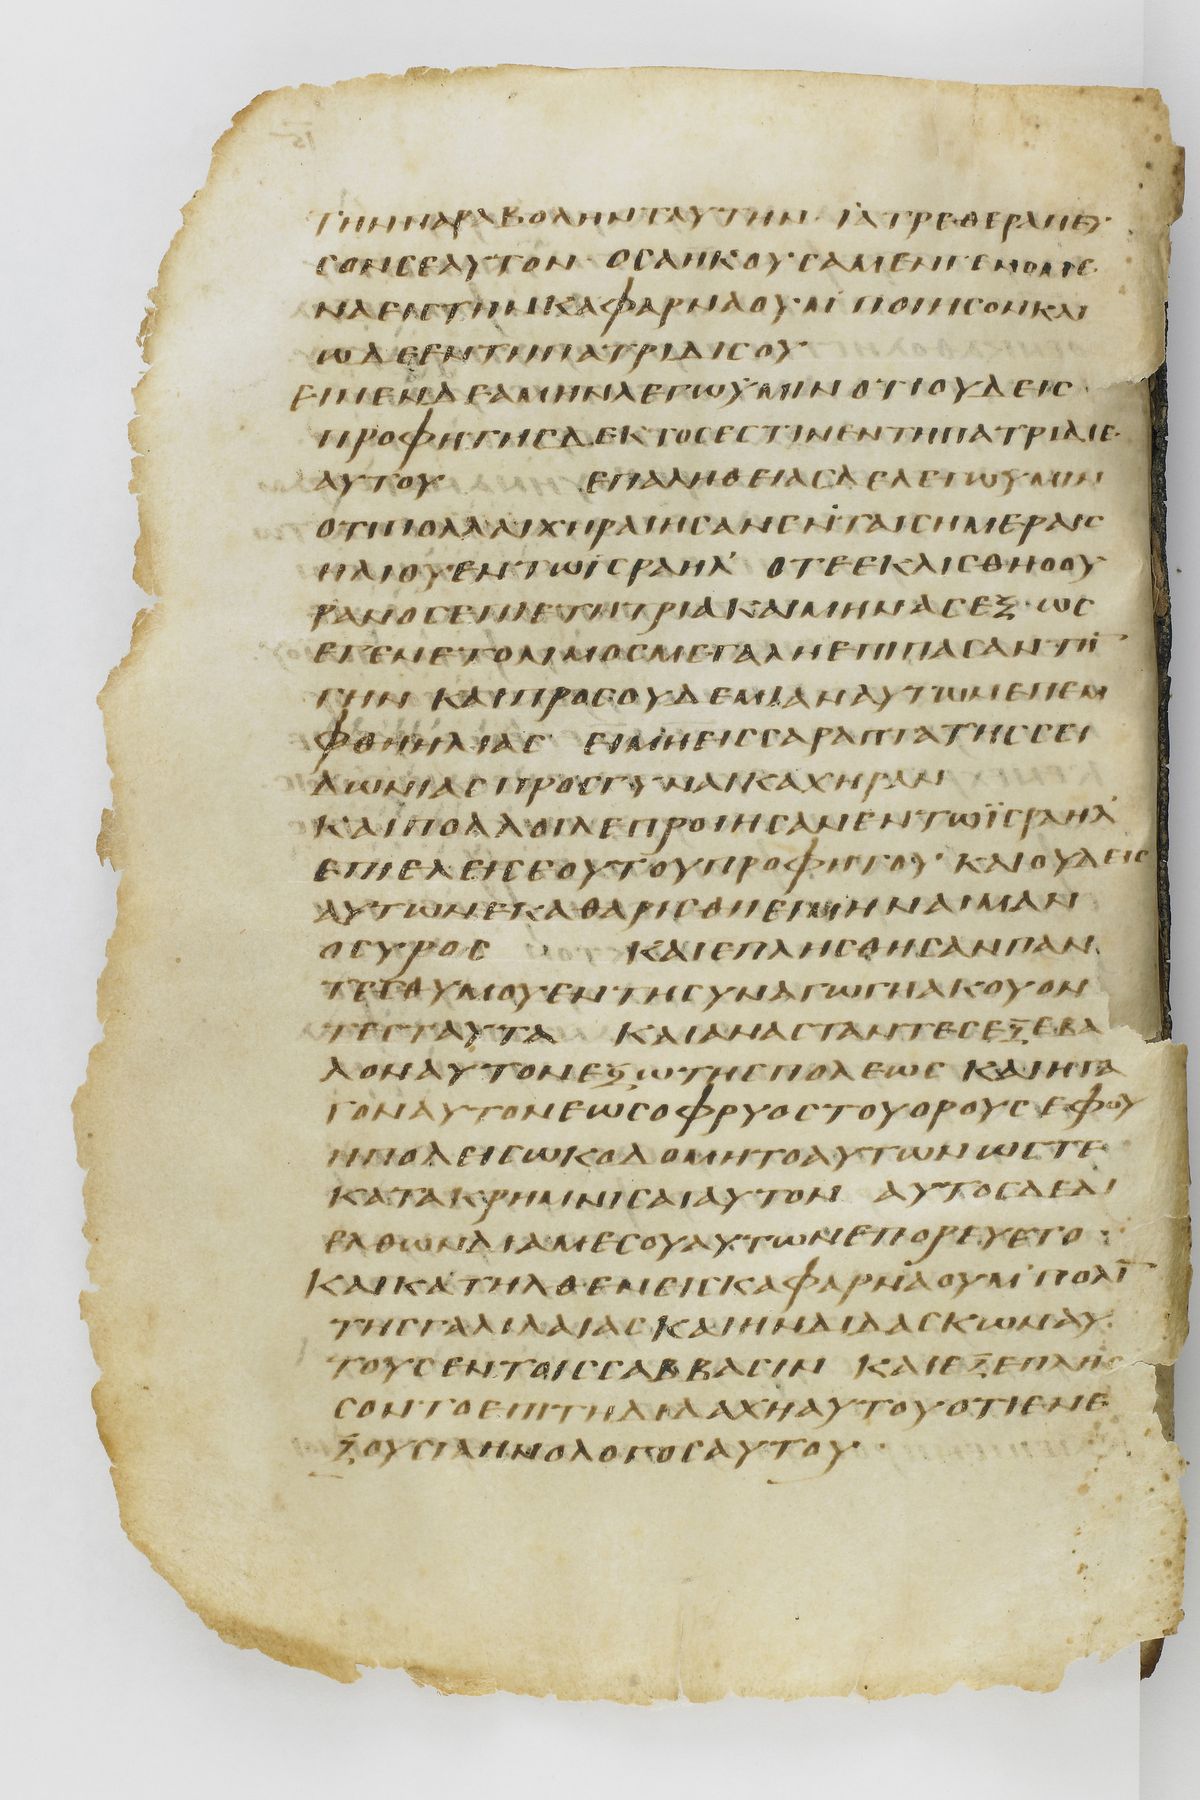 ΤΗΝΠΑΡΑΒΟΛΗΝΤΑΥΤΗΝ ΪΑΤΡΕΘΕΡΑΠΕΥ
ΣΟΝΣΕΑΥΤΟΝ ΟΣΑΗΚΟΥΣΑΜΕΝΓΕΝΟΜΕ
ΝΑΕΙΣΤΗΝΚΑΦΑΡΝΑΟΥΜ ΠΟΙΗΣΟΝΚΑΙ
ΩΔΕΕΝΤΗΠΑΤΡΙΔΙΣΟΥ
ΕΙΠΕΝΔΕΑΜΗΝΛΕΓΩΫΜΙΝΟΤΙΟΥΔΕΙΣ
ΠΡΟΦΗΤΗΣΔΕΚΤΟΣΕΣΤΙΝΕΝΤΗΠΑΤΡΙΔΙΕ
ΑΥΤΟΥ ΕΠΑΛΗΘΕΙΑΣΔΕΛΕΓΩΫΜΙΝ
ΟΤΙΠΟΛΛΑΙΧΗΡΑΙΗΣΑΝΕΝΤΑΙΣΗΜΕΡΑΙΣ
ΗΛΙΟΥΕΝΤΩΙΣΡΑΗΛ ΟΤΕΕΚΛΙΣΘΗΟΟΥ
ΡΑΝΟΣΕΠΙΕΤΗΤΡΙΑΚΑΙΜΗΝΑΣΕΞ ΩΣ
ΕΓΕΝΕΤΟΛΙΜΟΣΜΕΓΑΛΗΕΠΙΠΑΣΑΝΤΗ
ΓΗΝ ΚΑΙΠΡΟΣΟΥΔΕΜΙΑΝΑΥΤΩΝΕΠΕΜ
ΦΘΗΗΛΙΑΣ ΕΙΜΗΕΙΣΣΑΡΑΠΤΑΤΗΣΣΕΙ
ΔΩΝΙΑΣΠΡΟΣΓΥΝΑΙΚΑΧΗΡΑΝ
ΚΑΙΠΟΛΛΟΙΛΕΠΡΟΙΗΣΑΝΕΝΤΩΪΣΡΑΗΛ
ΕΠΙΕΛΕΙΣΕΟΥΤΟΥΠΡΟΦΗΤΟΥ ΚΑΙΟΥΔΕΙΣ
ΑΥΤΩΝΕΚΑΘΑΡΙΣΘΗΕΙΜΗΝΑΙΜΑΝ
ΟΣΥΡΟΣ ΚΑΙΕΠΛΗΣΘΗΣΑΝΠΑΝ
ΤΕΣΘΥΜΟΥΕΝΤΗΣΥΝΑΓΩΓΗΑΚΟΥΟΝ
ΤΕΣΤΑΥΤΑ ΚΑΙΑΝΑΣΤΑΝΤΕΣΕΞΕΒΑ
ΛΟΝΑΥΤΟΝΕΞΩΤΗΣΠΟΛΕΩΣ ΚΑΙΗΓΑ
ΓΟΝΑΥΤΟΝΕΩΣΟΦΡΥΟΣΤΟΥΟΡΟΥΣΕΦΟΥ
ΗΠΟΛΕΙΣΩΚΟΔΟΜΗΤΟΑΥΤΩΝΩΣΤΕ
ΚΑΤΑΚΡΗΜΝΙΣΑΙΑΥΤΟΝ ΑΥΤΟΣΔΕΔΙ
ΕΛΘΩΝΔΙΑΜΕΣΟΥΑΥΤΩΝΕΠΟΡΕΥΕΤΟ
ΚΑΙΚΑΤΗΛΘΕΝΕΙΣΚΑΦΑΡΝΑΟΥΜ ΠΟΛΙ
ΤΗΣΓΑΛΙΛΑΙΑΣΚΑΙΗΝΔΙΔΑΣΚΩΝΑΥ
ΤΟΥΣΕΝΤΟΙΣΣΑΒΒΑΣΙΝ ΚΑΙΕΞΕΠΛΗΣ
ΣΟΝΤΟΕΠΙΤΗΔΙΔΑΧΗΑΥΤΟΥΟΤΙΕΝΕ
ΞΟΥΣΙΑΗΝΟΛΟΓΟΣΑΥΤΟΥ